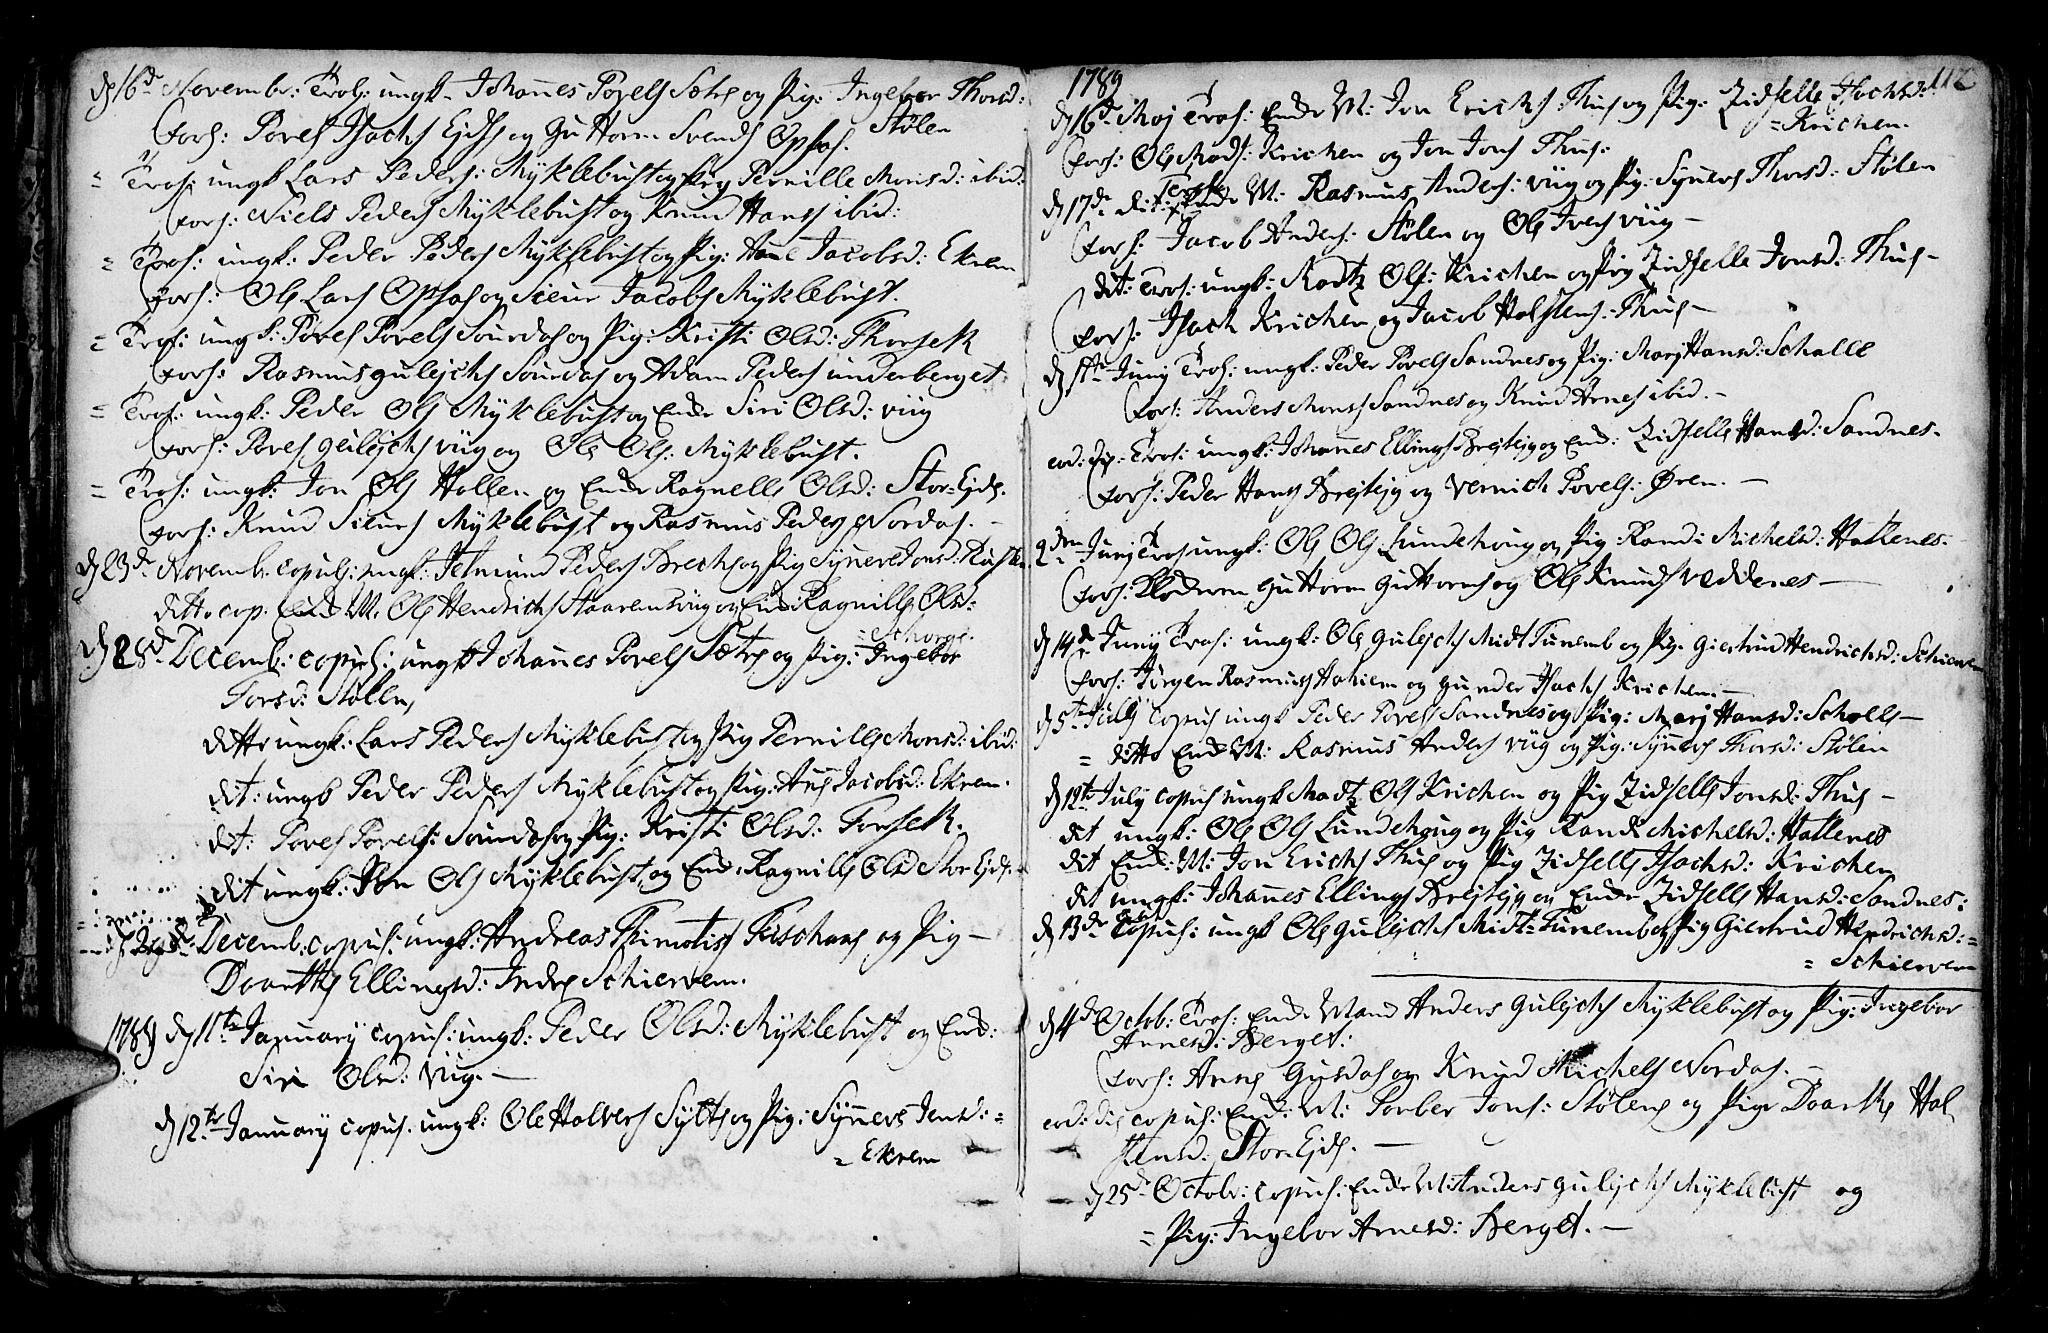 d 16d Novembr: Trol: ungk. Johañes Povels Sætre og Pig: Ingebor Thorsd:
Stølen
forl: Povel Isachs Ejds og Guttorm Svends Opsal.
= Trol: ungk Lars Peders: Myklebust og Pig Pernille Monsd: ibid:
forl: Niels Peders Myklebust og Knud Hans ibid:
= Trol: ungk: Peder Peders Myklebust og Pig: Jacobsd: Ekrem
forl: Ole Lars Opsal og Siver Jacobs Myklebust.
= Trol: ungk: Povel Povels Sourdal og Pig: Kristi Olsd: Thorseth
forl: Rasmus gulichs Sourdal og Adam Peders underberget
= Trol: ungk: Peder Ols Myklebust og Enke Siri Olsd: viig
forl: Povel gulichs viig og Ole Ols: Myklebust.
= Trol: ungk: Jon Ols Hollen og Enke Ragnelle Olsd: Stor-Ejde.
forl: Knud Siurs Myklebust og Rasmus Peders Nordal. -
d 23d Novemb. copul: ungk: Peders og Pig Syneve Jonsd:
ditto cop. Enk M. Ole Hendrichs og Enk Ragnille Olsd:
d 28d Decemb: copul: ungk Johañes Povels Sætre og Pig: Ingebor
Torsd: Stølen,
ditto ungk: Lars Peders Myklebust og Pig Pernille Monsd: ibid:
dit: ungk Peder Peders Myklebust og Pig: Jacobsd: Ekrem.
dit: Povel Povels: Sourdal og Pig: Kristi Olsd: Torseth.
dit ungk: Jon Ols Myklebust og Enk: Ragnille Olsd Stor Ejde.
Decemb: copul: ungk: Andreas og Pig -
Dorothe Ellingsd: Indre Schierven.
1789 d 11te January copul: ungk: Peder Olsd: Myklebust og Enk:
Siri Olsd: viig. -
d 12te January copul. ungk: Ole Halvors Sylte og Pig: Synneve Jensd: =
= Ekrem
1789
112
d 16d Maj Trol: Enke M: Jon Erichs Thue og Pig: Zidselle Isachsd:
= Krichen.
forl: Ole Mads: Krichen og Jon Jons Thue:
d 17de dit: Trol: Enke M: Rasmus Anders: viig og Pig: Synneve Thorsd: Stølen
forl: Jacob Anders: Stølen og Ole Ivers viig -
dit: Trol: ungk: Madtz Ols: Krichen og Pig Zidselle Jonsd: Thue -
forl: Isach Krichen og Jacob Halstens: Thue -
d 1te Juny Trol: ungk: Peder Povels Sandnes og Pig: Marj Hansd: Scholle
forl: Anders Mons Sandnes og Knud Arnes ibid. -
eod: die: Trol: ungk: Johañes Ellings Brejtejg og Enk: Zidselle Hansd: Sandnes.
forl: Peder Hans Brejtejg og Vernich Povels: Øren. -
2den Juny Trol ungk: Ole Ols: Lundehoug og Pig: Randi Michelsd: Hattenes:
forl: Guttorm Guttorms og Ole Knuds Veddenes -
d 14de Juny Trol: ungk: Ole Gulichs Midt Tunemb og Pig: Giertrud Hendrichsd: Schierven
forl: Jørgen Rasmus Hahiem og gunder Isachs Krichen. -
d 5te July copul ungk Peder Povels Sandnes og Pig: Marj Hansd: Scholle -
= ditto Enk M: Rasmus Anders viig og Pig: Syñeve Thorsd: Stølen
d 12te July copul ungk Madtz Ols Krichen og Pig Zidselle Jonsd: Thue -
dit ungk: Ole Ols Lundehoug og Pig Randi Michelsd: Hattenes
dit Enk: M: Jon Erichs Thue og Pig Zidselle Isachsd: Krichen
dit ungk: Johañes Ellings Brejtejg og Enke Zidselle Hansd: Sandnes:
d 13de copul: ungk Ole Gulichs Midt-Tunemb og Pig Giertrud Hendrichsd: =
= Schierven
d 4de Octob: Trol: Enke Mand Anders Gulichs Myklebust og Pig: Ingebor
Arnesd: Berget:
forl: Arne Gusdal og Knud Michels Nordal. -
eod: die copul: Enk: M: Torber Jons: Stølen og Pige Dorthe Hal
stensd: Stor Ejde. -
d 25d Octobr: copul: Enke M: Anders Gulichs Myklebust og
= Pig: Ingebor Arnesd: Berget. -